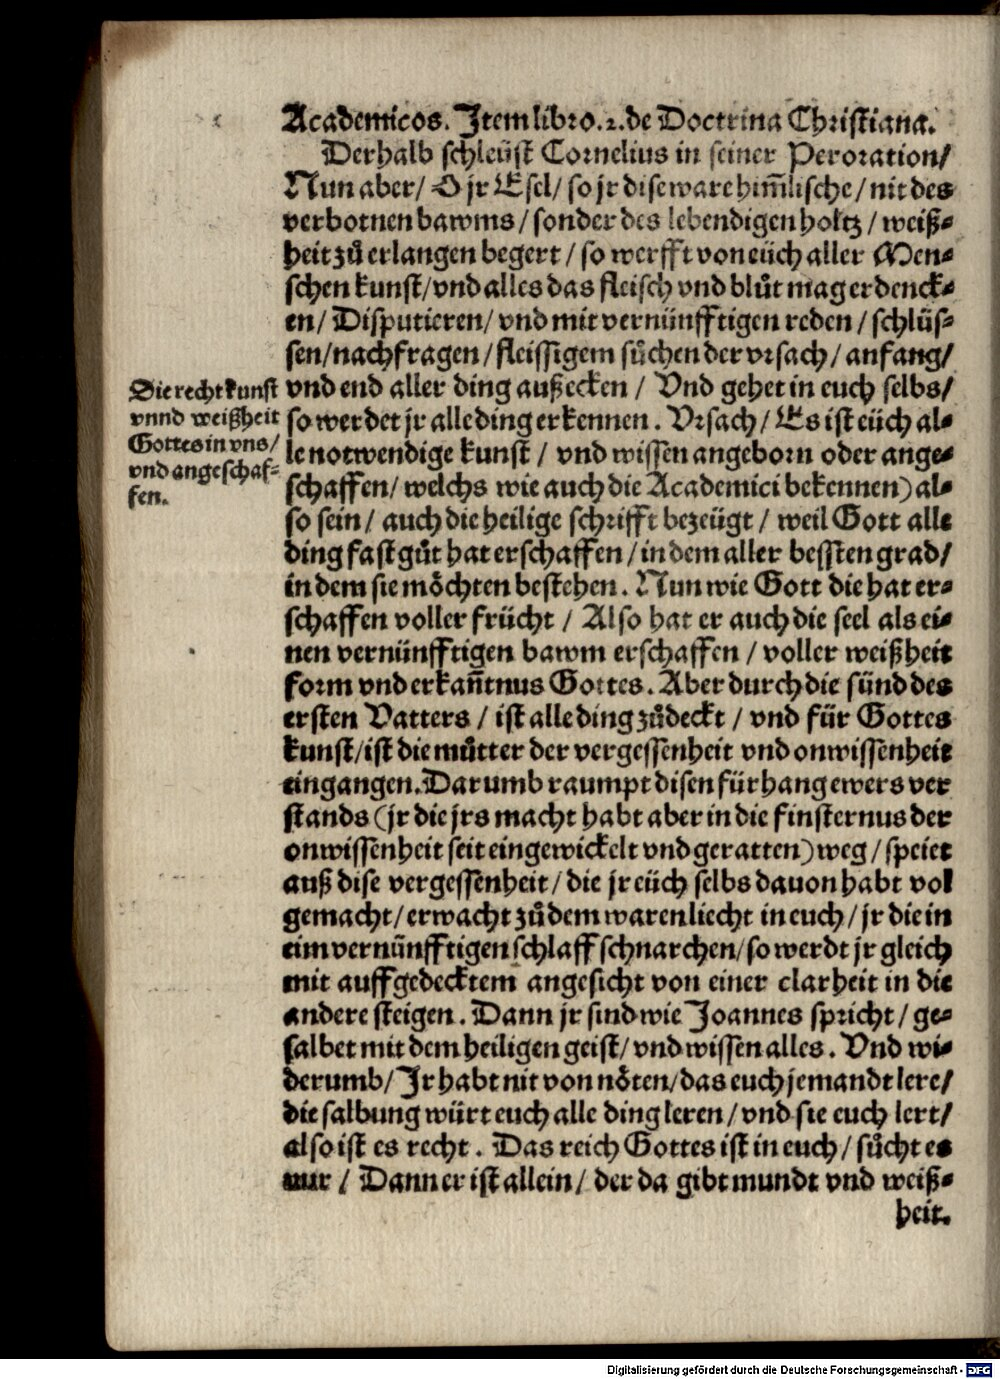 Academicos. Item libro.2.de Doctrina Christiana.
Derhalb schleüst Cornelius in seiner Peroration/
Nun aber/ O jr Esel/ so jr dise ware him̃lische/ nit des
verbotnen bawms/ sonder des lebendigen holtz/ weiß-
heit zů erlangen begert/ so werfft von eüch aller Men-
schen kunst/ vnd alles das fleisch vnd blůt mag erdenck-
en/ Disputieren/ vnd mit vernünfftigen reden/ schlüs-
sen/ nachfragen/ fleissigem sůchen der vrsach/ anfang/
vnd end aller ding außecken/ Vnd gehet in euch selbs/
so werdet jr alle ding erkennen. Vrsach/ Es ist eüch al-
le notwendige kunst/ vnd wissen angeborn oder ange-
schaffen/ welchs wie auch die Academici bekennen) al-
so sein/ auch die heilige schrifft bezeügt/ weil Gott alle
ding fast gůt hat erschaffen/ in dem aller bessten grad/
in dem sie möchten bestehen. Nun wie Gott die hat er-
schaffen voller frücht/ Also hat er auch die seel als ei-
nen vernünfftigen bawm erschaffen/ voller weißheit
form vnd erkañtnus Gottes. Aber durch die sünd des
ersten Vatters/ ist alle ding zůdeckt/ vnd für Gottes
kunst/ ist die můtter der vergessenheit vnd onwissenheit
eingangen. Darumb raumpt disen fürhang ewers ver
stands (jr die jrs macht habt aber in die finsternus der
onwissenheit seit eingewickelt vnd geratten) weg/ speiet
auß dise vergessenheit/ die jr eüch selbs dauon habt vol
gemacht/ erwacht zů dem waren liecht in euch/ jr die in
eim vernünfftigen schlaff schnarchen/ so werdt jr gleich
mit auffgedecktem angesicht von einer clarheit in die
andere steigen. Dann jr sind wie Joannes spricht/ ge-
salbet mit dem heiligen geist/ vnd wissen alles. Vnd wi-
derumb/ Jr habt nit von nöten/ das euch jemandt lere/
die salbung würt euch alle ding leren/ vnd sie euch lert/
also ist es recht. Das reich Gottes ist in euch/ sůcht es
nur/ Dann er ist allein/ der da gibt mundt vnd weiß-
heit.
Die recht kunst
vnnd weißheit
Gottes in vns/
vnd angeschaf-
fen.
Digitalisierung gefördert durch die Deutsche Forschungsgemeinschaft - DFG